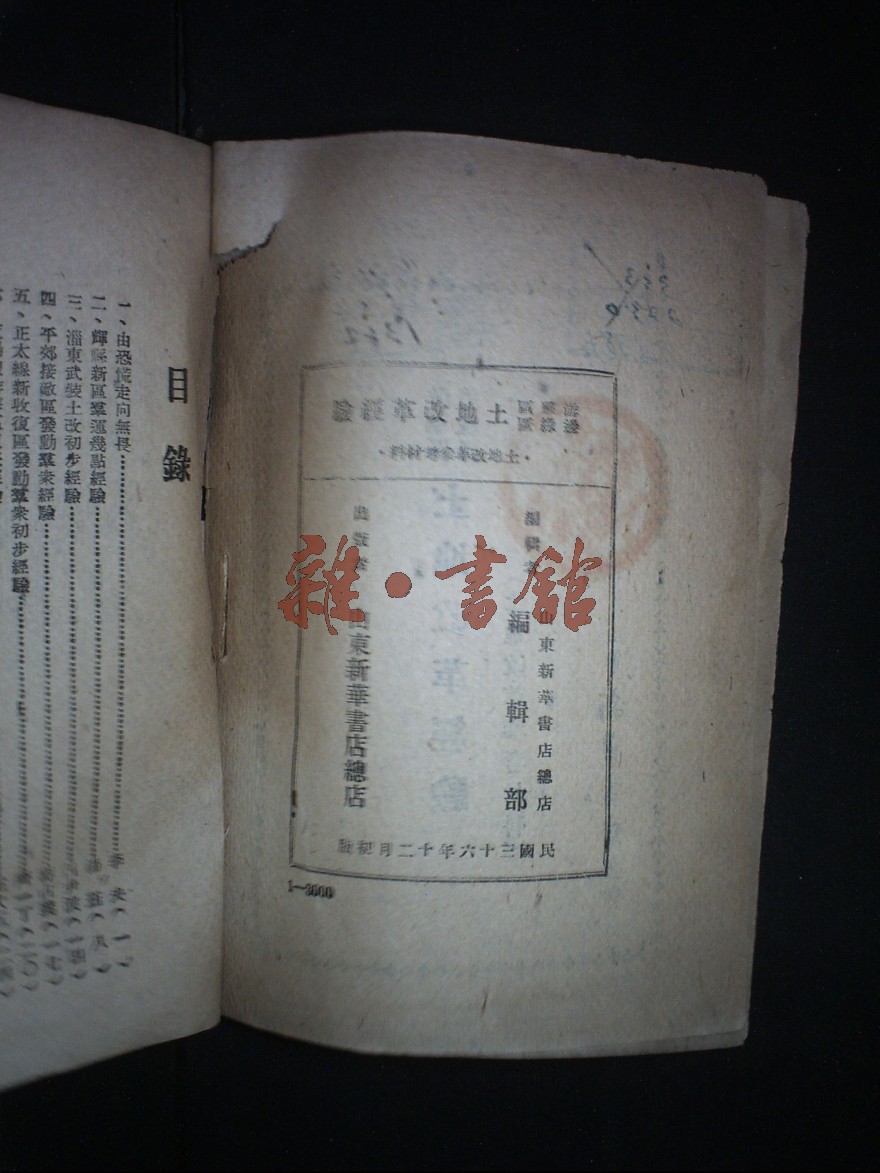 邊緣區
游擊區
土地改革經驗
·土地改革參考材料·
編輯者
山東新華書店總店
編輯部
出版者
山東新華書店總店
民國三十六年十二月初版
1—3000
雜·書館
目錄
一、由恐慌走向無畏
(一)
二、輝縣新區羣運幾點經驗
(八)
三、淄東武裝土改初步經驗
四、平郊接敵區發動羣衆經驗
(一七)
五、正太線新收復區發動羣衆初步經驗
(二〇)